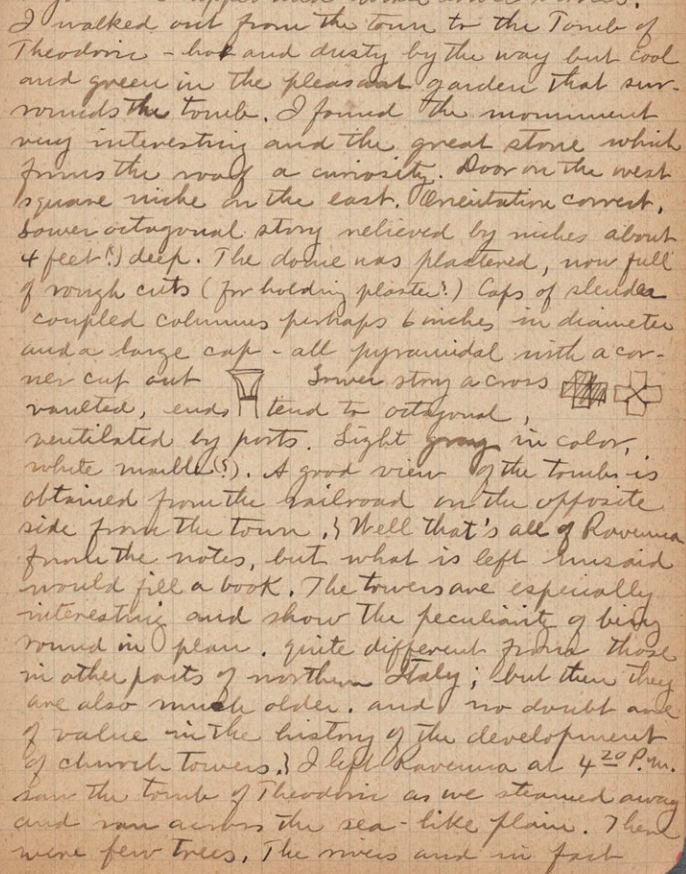 I walked out from the town to the Tomb of
Theodoric - hot and dusty by the way but cool
and green in the pleasant garden that sur-
rounds the tomb. I found the monument
very interesting and the great stone which
forms the roof a curiosity. Door on the west
square niche on the east. Orientation correct.
Lower octagonal story relieved by niches about
4 feet(?) deep. The dome was plastered, now full
of rough cuts (for holding plaster?) Caps of slender
coupled columns perhaps 6 inches in diameter
and a large cap - all pyramidal with a cor-
ner cut out Lower story a cross
vaulted, ends tend to octagonal,
ventilated by ports. Light gray in color,
white marble(?). A good view of the tomb is
obtained from the railroad on the opposite
side from the town. } Well that's all of Ravenna
from the notes, but what is left unsaid
would fill a book. The towers are especially
interesting and show the peculiarity of being
round in plan. quite different from those
in other parts of northern Italy; but then they
are also much older. and no doubt are
of value in the history of the development
of church towers. } I left Ravenna at 4 20 P.M.
saw the tomb of Theodoric as we steamed away
and ran across the sea-like plain. There
were few trees. The rivers and in fact